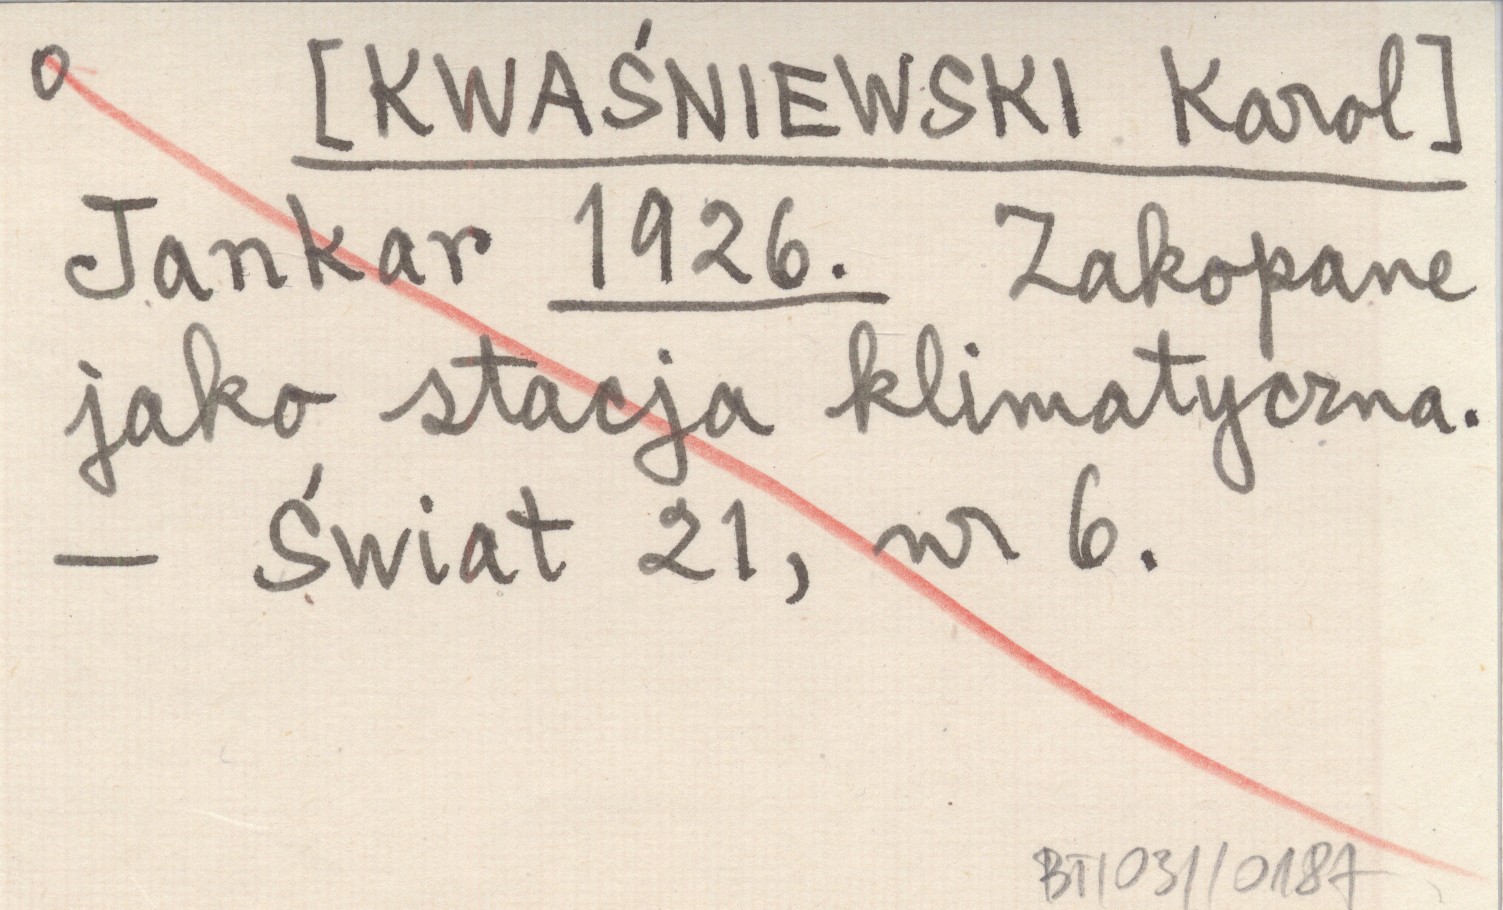 o [KWAŚNIEWSKI Karol]
Jankar 1926. Zakopane
jako stacja klimatyczna.
— Świat 21, nr 6.
BT/031/0187